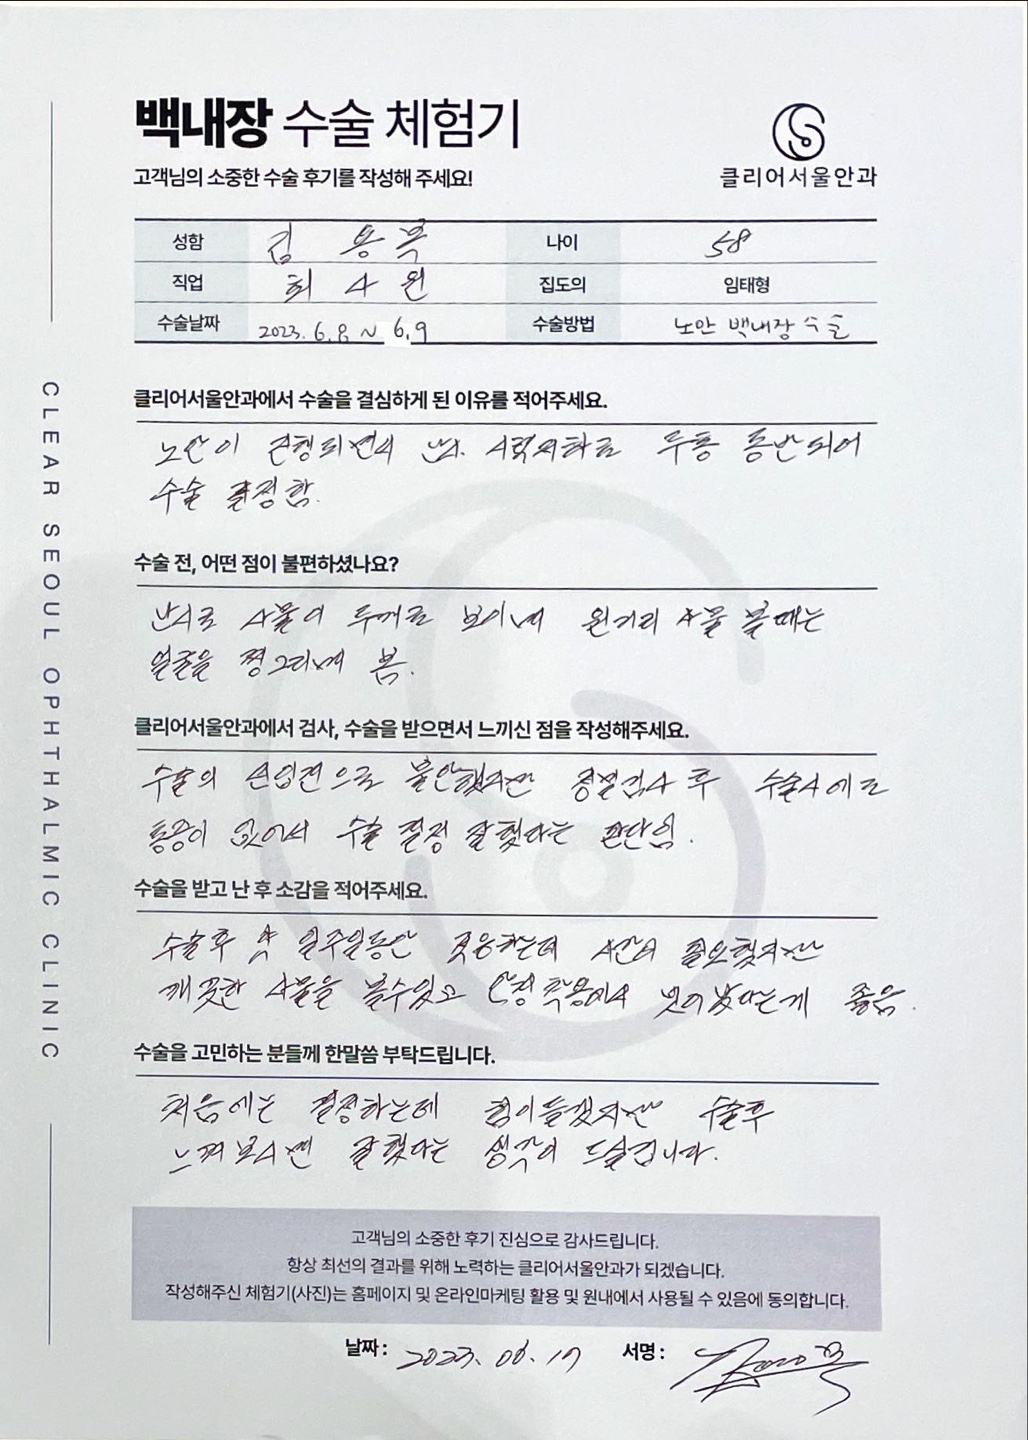 백내장 수술 체험기
고객님의 소중한 수술 후기를 작성해 주세요!
클리어서울안과
성함 김용옥 나이 58
직업 회사원 집도의 임태형
수술날짜 2023. 6. 8 ~ 6. 9 수술방법 노안 백내장 수술
클리어서울안과에서 수술을 결심하게 된 이유를 적어주세요.
노안이 진행되면서 난시. 시력저하로 두통 동반되어
수술 결정함.
수술 전, 어떤 점이 불편하셨나요?
난시로 사물이 두개로 보이며 원거리 사물 볼때는
얼굴을 찡그리며 봄.
클리어서울안과에서 검사, 수술을 받으면서 느끼신 점을 작성해주세요.
수술의 선입견으로 불안했지만 정밀검사 후 수술시에도
통증이 없어서 수술 결정 잘했다는 판단임.
수술을 받고 난 후 소감을 적어주세요.
수술후 약 일주일동안 적응하는데 시간이 필요했지만
깨끗한 사물을 볼수있고 안경착용에서 벗어났다는게 좋음.
수술을 고민하는 분들께 한말씀 부탁드립니다.
처음에는 결정하는데 힘이들겠지만 수술후
느껴보시면 잘했다는 생각이 드실겁니다.
고객님의 소중한 후기 진심으로 감사드립니다.
항상 최선의 결과를 위해 노력하는 클리어서울안과가 되겠습니다.
작성해주신 체험기(사진)는 홈페이지 및 온라인마케팅 활용 및 원내에서 사용될 수 있음에 동의합니다.
날짜 : 2023. 06. 17 서명 :
CLEAR SEOUL OPHTHALMIC CLINIC